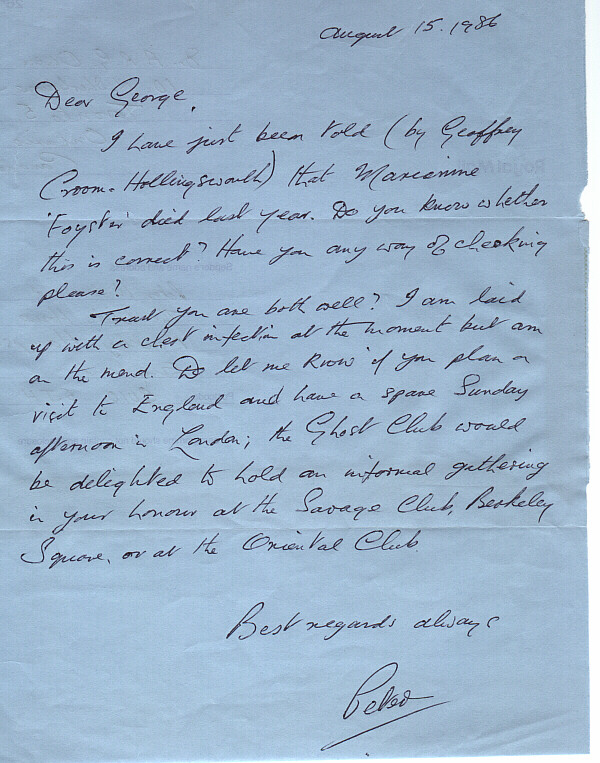 August 15. 1986
Dear George,
I have just been told (by Geoffrey
Croom-Hollingsworth) that Marianne
'Foyster' died last year. Do you know whether
this is correct? Have you any way of checking
please?
Trust you are both well? I am laid
up with a chest infection at the moment but am
on the mend. Do let me know if you plan a
visit to England and have a spare Sunday
afternoon in London; the Ghost Club would
be delighted to hold an informal gathering
in your honour at the Savage Club, Berkeley
Square, or at the Oriental Club.
Best regards always
Peter